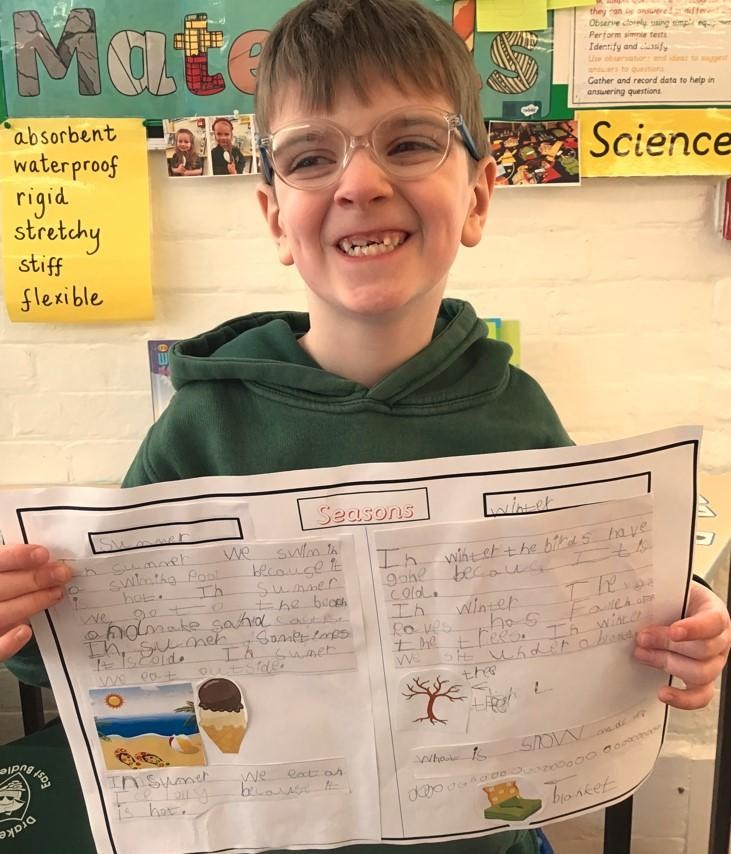 Materials
they can be answered in different
Observe closely, using simple
Perform simple tests
Identify and classify
Use observations and ideas to suggest
answers to questions
Gather and record data to help in
answering questions.
Science
absorbent
waterproof
rigid
stretchy
stiff
flexible
Seasons
Summer
In summer we swim in
a swiming pool because it
is hot. In Summer
we go to the beach
and make sand
In sumer Sometimes
it is cold. In Sumer
we eat outside.
In sumer we eat an
Ice lolly because it
is hot.
winter
In winter the birds have
gone becaus It is
cold.
In winter The
leaves has
the trees. In winter
we sit under a blanket
tree
What is snow made of
blanket
East Budle
Drake